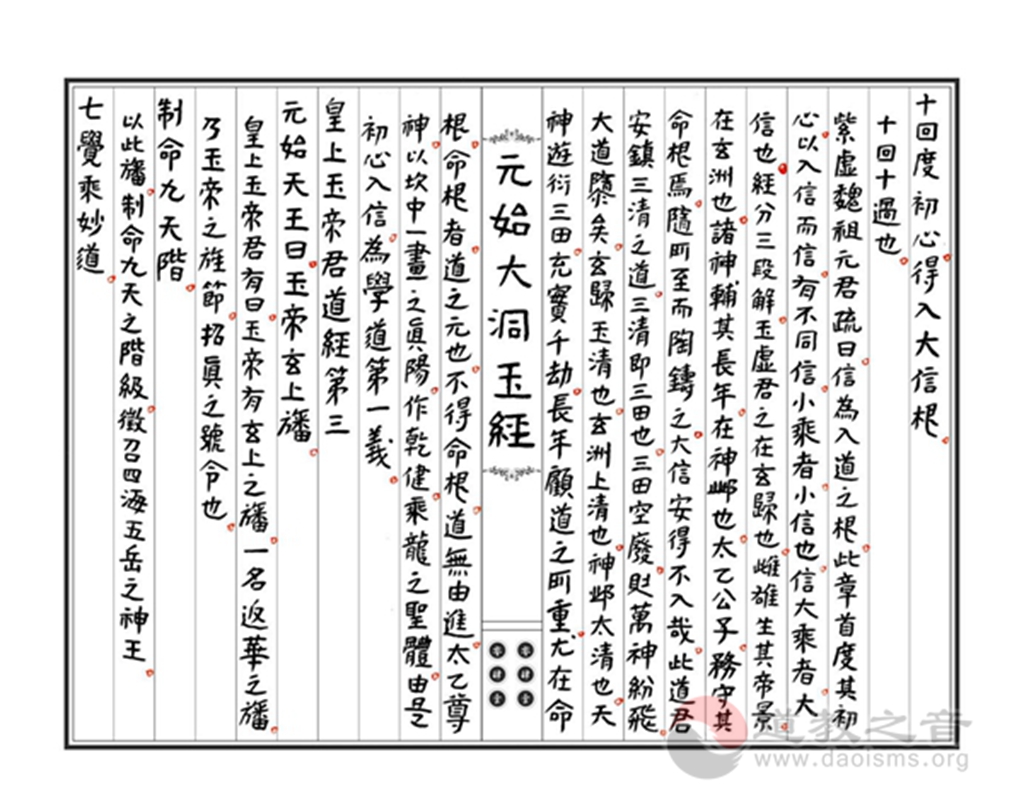 十回度初心得入大信根
十回十過也
紫虛魏祖元君疏曰信為入道之根此章首度其初
心以入信而信有不同信小乘者小信也信大乘者大
信也經分三段解玉虛君之在玄歸也雌雄生其帝景
在玄洲也諸神輔其長年在神邺也太乙公子務守其
命根焉隨所至而陶鑄之大信安得不入哉此道君
安鎮三清之道三清即三田也三田空廢則萬神紛飛
大道隳矣玄歸玉清也玄洲上清也神邺太清也天
神遊衍三田充實千劫長年顧道之所重尤在命
元始大洞玉經
根命根者道之元也不得命根道無由進太乙尊
神以坎中一畫之眞陽作乾健乘龍之聖體由是
初心入信為學道第一義
皇上玉帝君道經第三
元始天王曰玉帝玄上旛
皇上玉帝君有曰玉帝有玄上之旛一名返華之旛
乃玉帝之旌節招眞之號令也
制命九天階
以此旛制命九天之階級徵召四海五岳之神王
七覺乘妙道
道教之音
www.daoisms.org